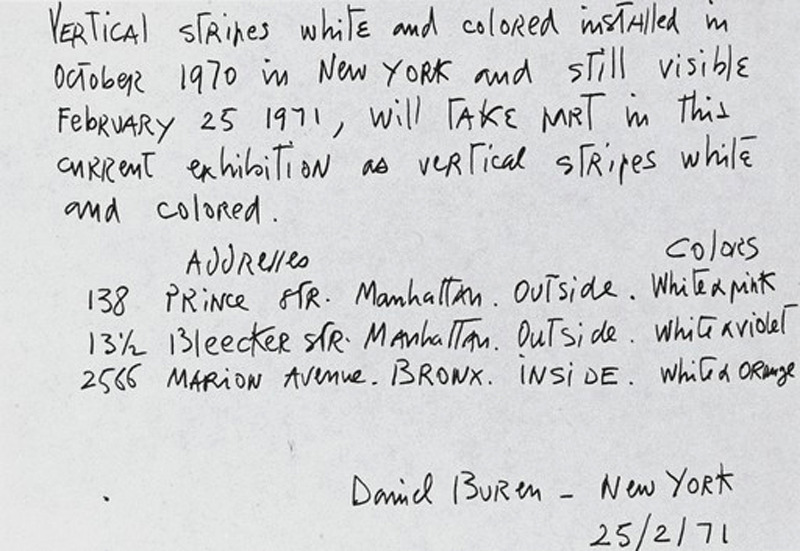 VERTICAL stripes white and colored installed in
October 1970 in New YORK and still visible
February 25 1971, will TAKE PART in this
current exhibition as vertical stripes white
and colored.
Addresses Colors
138 Prince STR. Manhattan. Outside. White & pink
13½ Bleecker STR. Manhattan. Outside. White & violet
2566 MARION Avenue. BRONX. INSIDE. White & ORange
Daniel Buren - New YORK
25/2/71